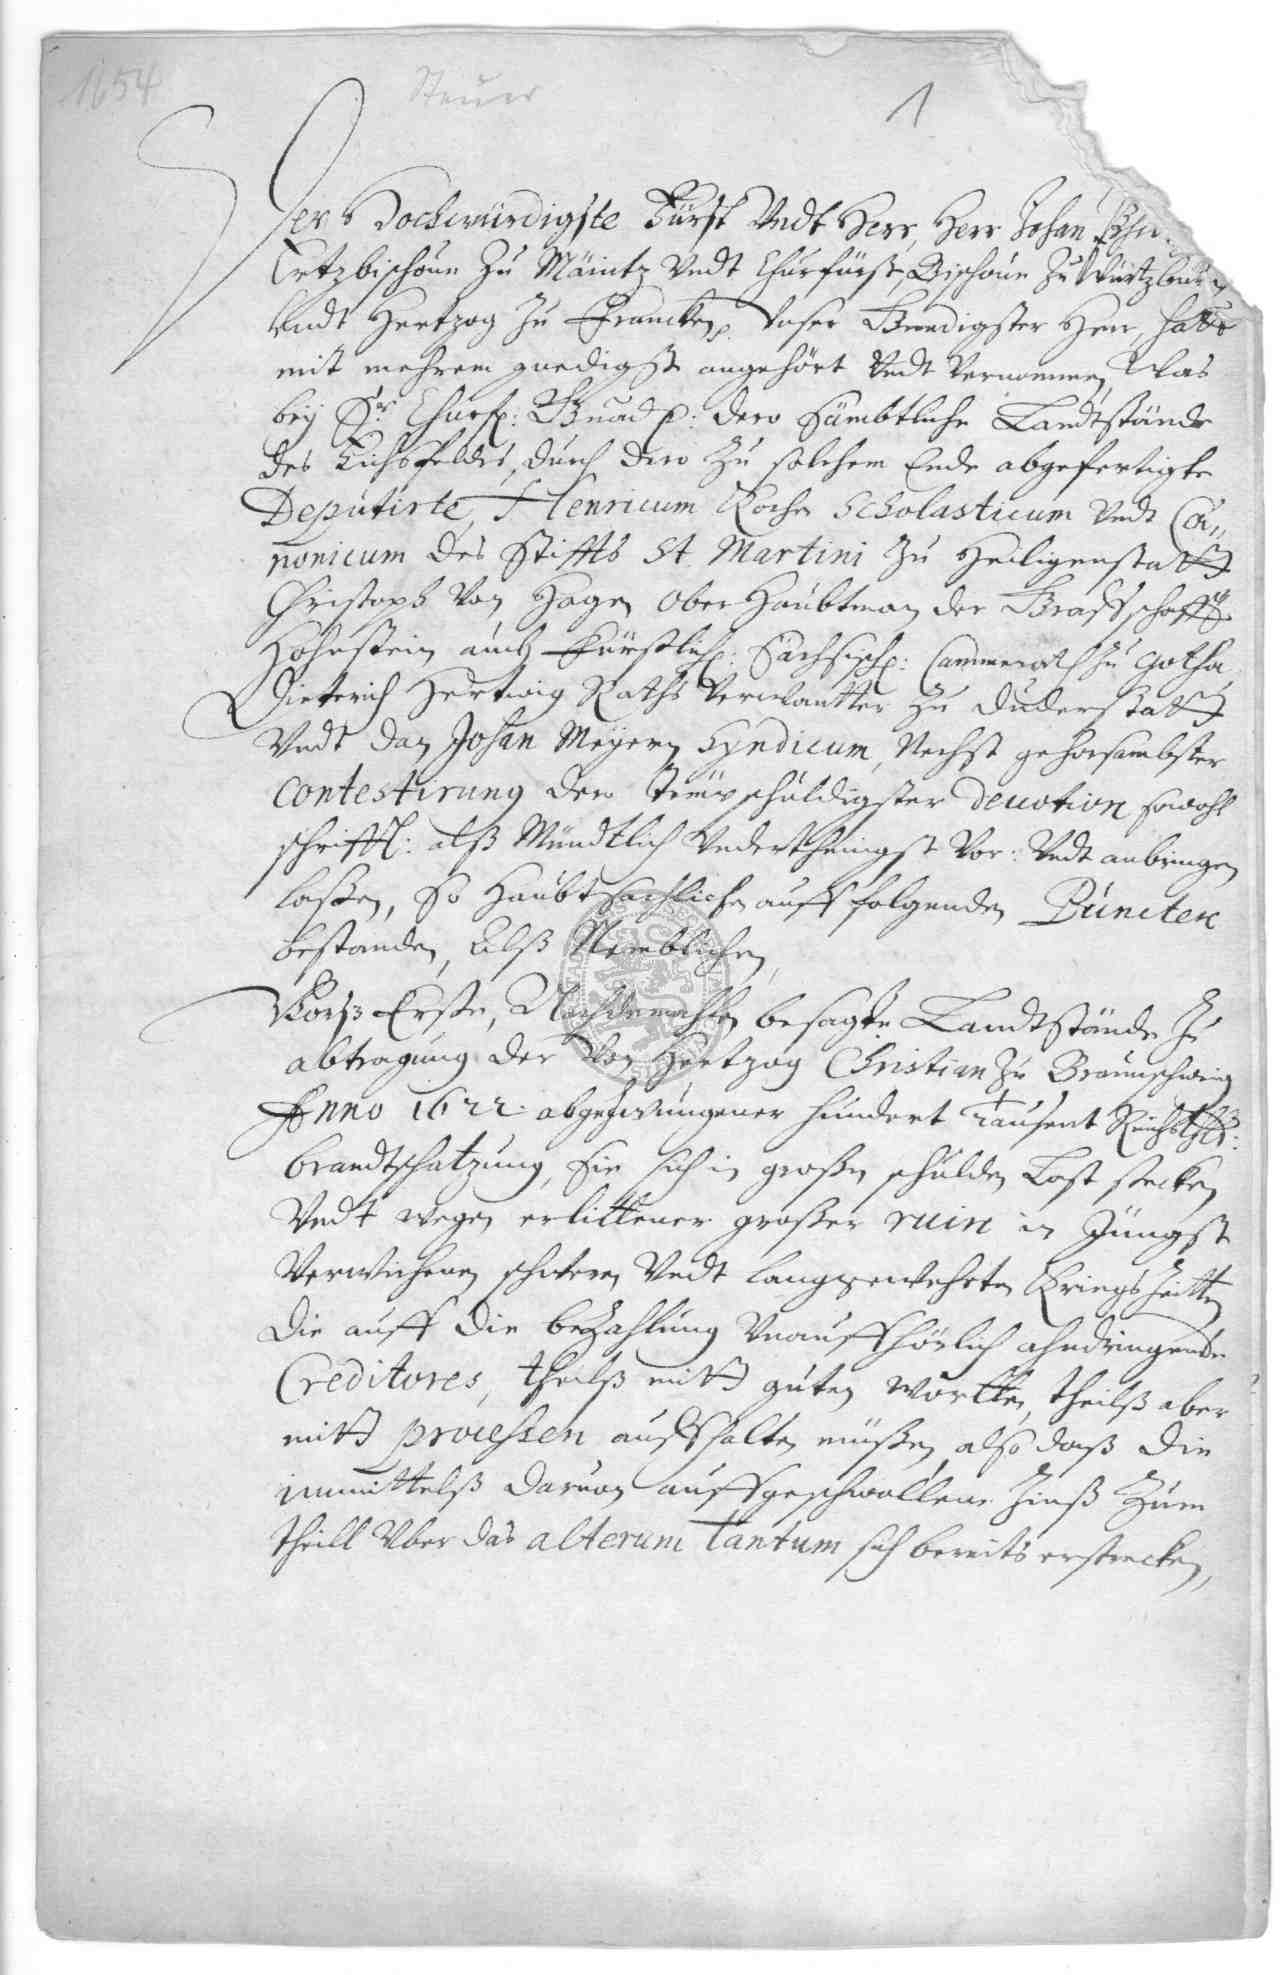 1654 Steuer 1
Der Hochwürdigste Fürst Vndt Herr, Herr Johan
Ertzbischoue Zu Mäintz Vndt Churfürst, Bischoue Zu Würtzburg
Vndt Hertzog Zu Francken, Vnser Gnedigster Herr, hatt
mit mehrem gnedigst angehört Vndt Vernommen, Was
bey Sr. Churf: Gnad: dero sämbtliche Landtstände
des Eichsfeldes, durch dero Zu solchem Ende abgefertigte
Deputirte, Henricum Kochen Scholasticum Vndt Ca„
nonicum des Stiffts St. Martini Zu Heiligenstatt
Christoph Von Hagen Ober Haubtman der Graffschafft
Hohnstein auch Fürstlich: Sächsisch: Cammerrath Zu Gotha,
Dieterich Hertwig Raths Verwantter Zu Duderstatt
Vndt dan Johan Meyern Syndicum, Nechst gehorsambster
Contestirung dero trew schuldigster deuotion sowohl
schrifftl: alß Mündtlich Vnderthenigst Vor: Vndt anbringen
laßen, So Haubtsachlichen auff folgenden Puncten
bestanden, Alß Nemblichen,
Vors Erste, Nachdemahlen besagte Landtstände Zu
abtragung der Von Hertzog Christian Zu Braunschweig
Anno 1622: abgezwungener hundert Tausent Reichsthlr:
brandtschatzung, sie sich in großen schulden Last stecken
Vndt wegen erlittener großer ruin in Jüngst
Verwichenen schweren Vndt langgewehrten Kriegs Zeitten
die auff die beZahlung Vnauffhörlich ahndringende
Creditores, theilß mitt guten wortten, theilß aber
mitt processen auffhalten müßen, also daß die
immittelß daruon auffgeschwollene Zinß Zum
theill Vber das alterum tantum sich bereits erstrecken,